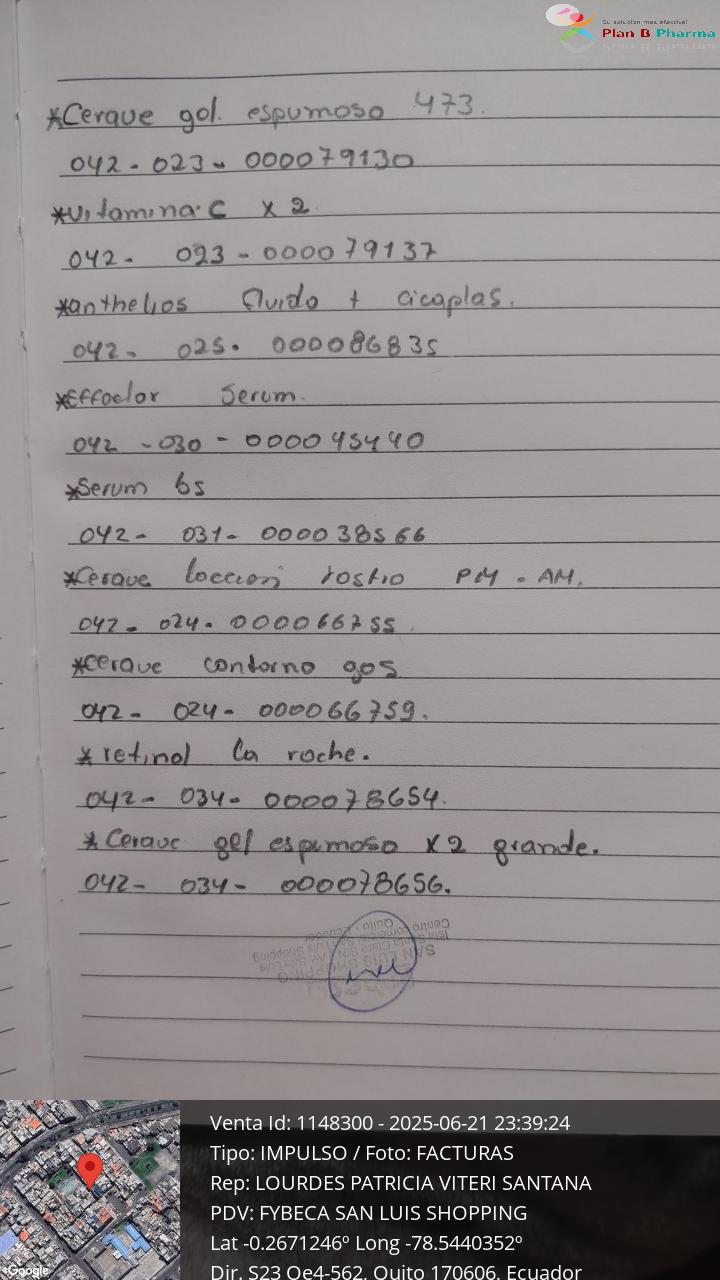 Su solución más efectiva!
Plan B Pharma
*Cerave gel. espumoso 473.
042 - 023 - 000079130
*vitamina C x 2
042 - 023 - 000079137
*anthelios fluido + cicaplas.
042 - 025 - 000086835
*Effaclar Serum.
042 - 030 - 000045440
*Serum b5
042 - 031 - 000038566
*Cerave loccion rostro PM - AM.
042 - 024 - 000066755
*cerave contorno gos
042 - 024 - 000066759.
*retinol la roche.
042 - 034 - 000078654.
*Cerave gel espumoso x 2 grande.
042 - 034 - 000078656.
SAN LUIS SHOPPING
Quito - Ecuador
Google
Venta Id: 1148300 - 2025-06-21 23:39:24
Tipo: IMPULSO / Foto: FACTURAS
Rep: LOURDES PATRICIA VITERI SANTANA
PDV: FYBECA SAN LUIS SHOPPING
Lat -0.2671246º Long -78.5440352º
Dir. S23 Oe4-562, Quito 170606, Ecuador